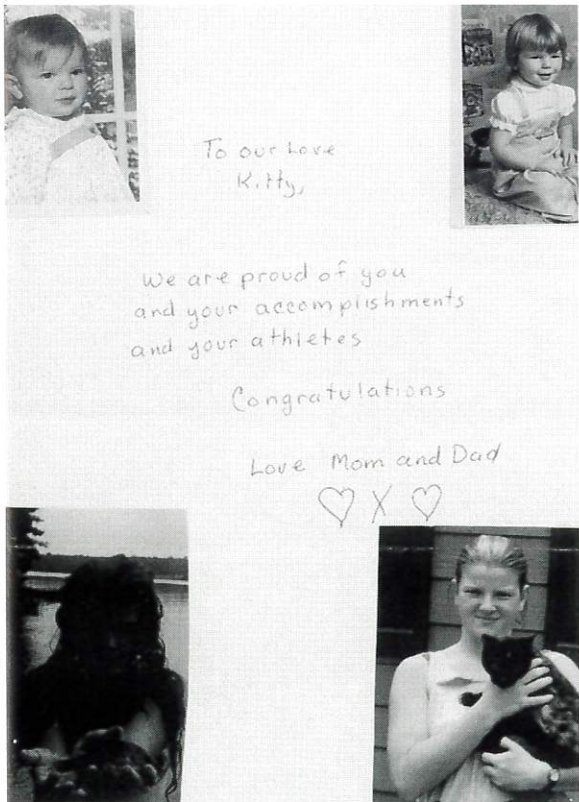 To our Love
Kitty,
We are proud of you
and your accomplishments
and your athletes
Congratulations
Love Mom and Dad
♡ X ♡